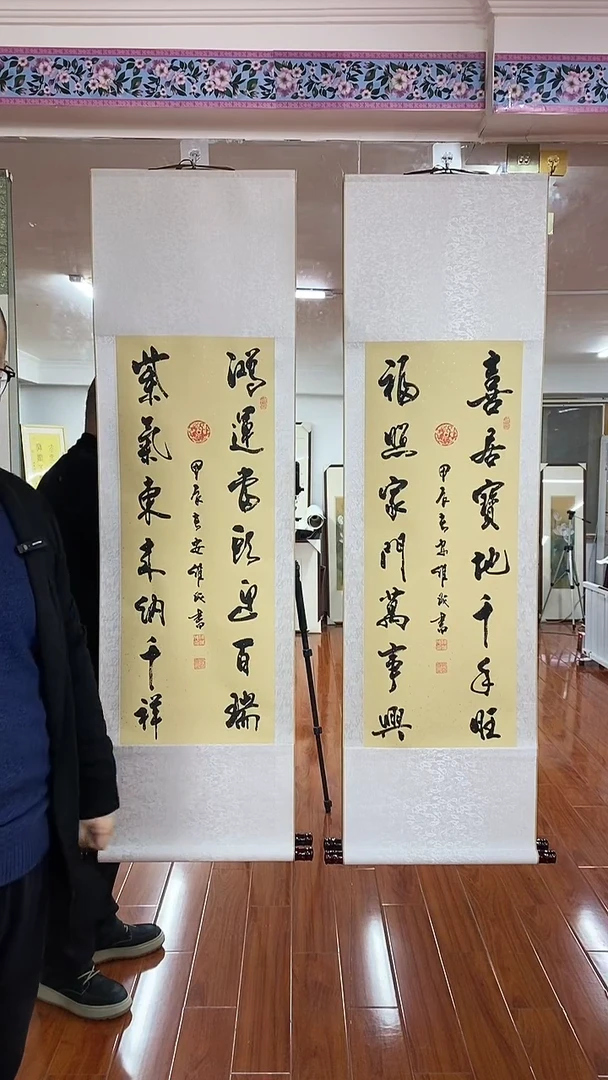 喜居寶地千年旺
福照家門萬事興
甲辰春安維成書
鴻運當頭迎百瑞
紫氣東来納千祥
甲辰春安維成書